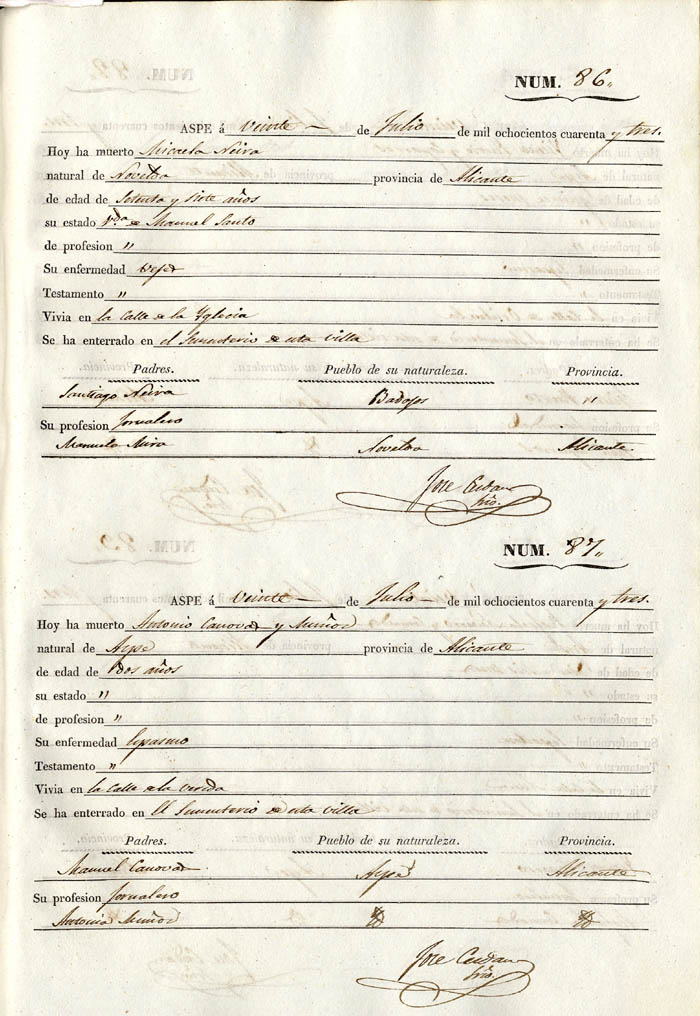 NUM. 86.
ASPE á veinte de Julio de mil ochocientos cuarenta y tres.
Hoy ha muerto Micaela Neira
natural de Novelda provincia de Alicante
de edad de Setenta y Siete años
su estado Vda de Manuel Santo
de profesion "
Su enfermedad vejez
Testamento "
Vivia en la Calle de la Yglecia
Se ha enterrado en el Sementerio de esta villa
Padres. Pueblo de su naturaleza. Provincia.
Santiago Neira Badajos "
Su profesion Jornalero
Manuela Mira Novelda Alicante.
Jose Cerdan
Srio.
NUM. 87.
ASPE á veinte de Julio de mil ochocientos cuarenta y tres.
Hoy ha muerto Antonio Canovas y Muñoz
natural de Aspe provincia de Alicante
de edad de dos años
su estado "
de profesion "
Su enfermedad Espasmo
Testamento "
Vivia en la Calle de la vereda
Se ha enterrado en El Sementerio de esta villa
Padres. Pueblo de su naturaleza. Provincia.
Manuel Canovas Aspe Alicante
Su profesion Jornalero
Antonia Muñoz
Jose Cerdan
Srio.